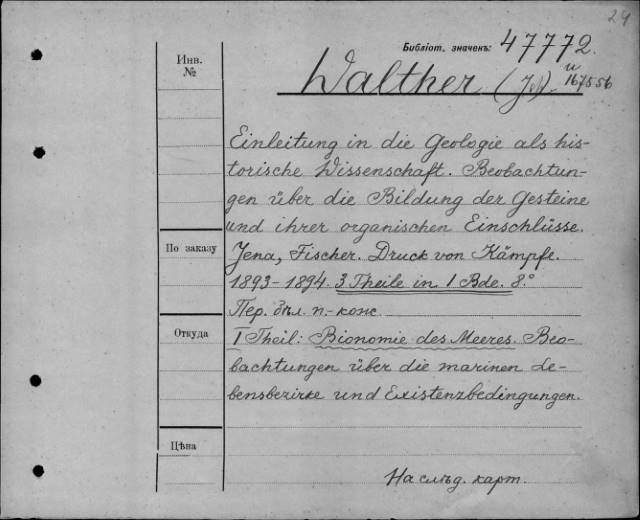 24
Библіот. значекъ: 47772.
и
Walther (Joh). 167556
Инв.
№
Einleitung in die Geologie als his-
torische Wissenschaft. Beobachtun-
gen über die Bildung der Gesteine
und ihrer organischen Einschlüsse.
По заказу
Jena, Fischer. Druck von Kämpfe.
1893-1894. 3 Theile in 1 Bde. 8.°
Пер. бѣл. п.-кож.
Откуда
I Theil: Bionomie des Meeres. Beo-
bachtungen über die marinen Le-
bensbezirke und Existenzbedingungen.
Цѣна
На слѣд. карт.